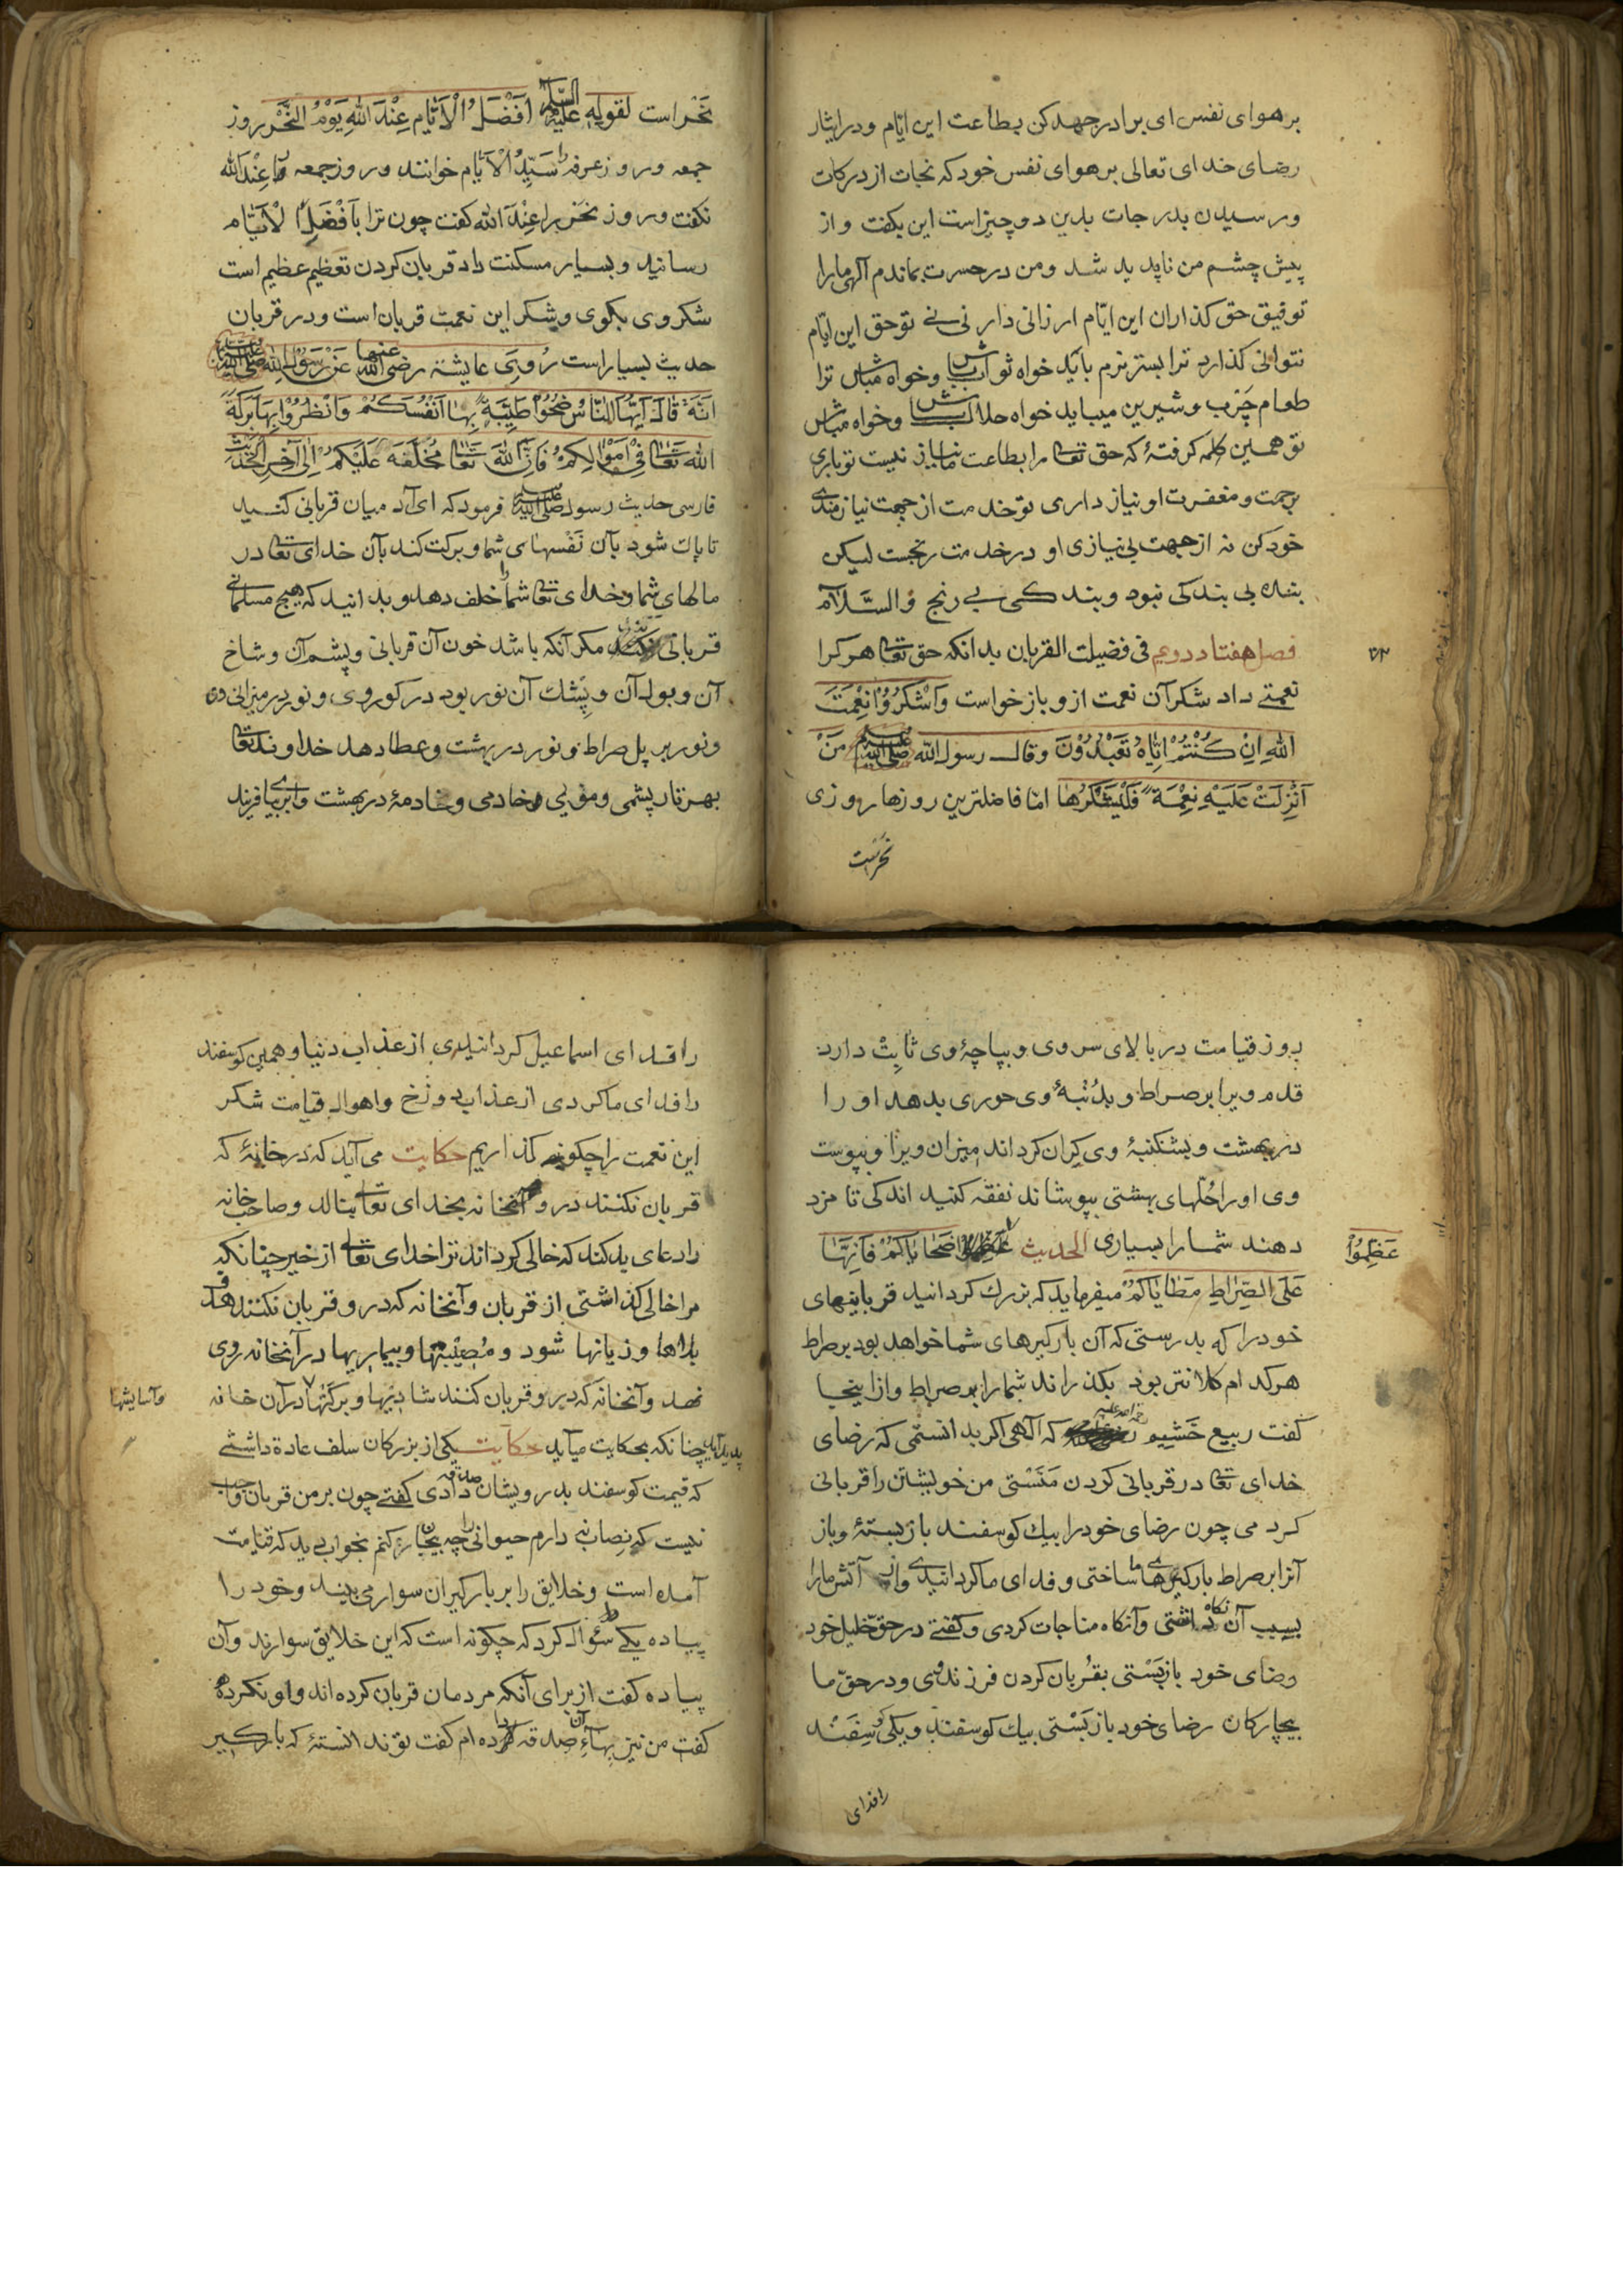 بر هوای نفس ای برادر جهد کن بطاعت این ایّام و در ایثار
رضای خدای تعالی بر هوای نفس خود که نجات از درکات
و رسیدن بدرجات بدین دو چیز است این بکفت و از
پیش چشم من ناپدید شد و من در حسرت بماندم آلهی مارا
توفیق حق کذاران این ایّام ارزانی دار نی نی تو حق این ایّام
نتوانی کذارد ترا بستر نرم باید خواه ثواب باش و خواه مباش ترا
طعام چَرب و شیرین میباید خواه حلال باش و خواه مباش
تو همین کلمه کرفتهٔ که حق تعالی را بطاعت ما نیاز نیست تو باری
برحمت و مغفرت او نیاز داری تو خدمت از جهت نیازمندی
خود کن نه از جهت بی نیازی او در خدمت رنجست لیکن
بنده بی بندکی نبود و بندکی بی رنج وَالسَّلَام
فصل هفتاد دویم فی فضیلت القربان بدانکه حق تعالی هر کرا
۷۲
نعمتی داد شکر آن نعمت ازو باز خواست وَاشْکُرُوْا نِعْمَتَ
اللهِ اِنْ کُنْتُمْ اِیَّاهُ تَعْبُدُوْنَ وقال رسول الله صلی الله علیه وسلم مَنْ
اُنْزِلَتْ عَلَیْهِ نِعْمَةٌ فَلْیَشْکُرْهَا امّا فاضلترین روزها روزی
نحر است
نَحْر است لقوله علیه السلام اَفْضَلُ الْاَیَّامِ عِنْدَ اللهِ یَوْمُ النَّحْرِ روز
جمعه و روز عرفه را سَیِّدُ الْاَیّام خوانند و روز جمعه را عِنْدَ الله
نکفت و روز نحر را عِنْدَ الله کفت چون ترا بَاَفْضَلِ الْاَیَّام
رسانید و بسیار مسکنت داد قربان کردن تعظیم عظیم است
شکر وی بکوی و شکر این نعمت قربان است و در قربان
حدیث بسیار است رُوِیَ عایشه رضی الله عنها عَنْ رَسُوْلِ اللهِ صلی الله علیه وسلم
اَنَّهُ قَالَ اَیُّهَا النَّاسُ ضَحُّوْا طَیِّبَةً بِهَا اَنْفُسَکُمْ وَانْظُرُوْا بِهَا بَرَکَةَ
اللهِ تَعَالٰی فِیْ اَمْوَالِکُمْ فَاِنَّ اللهَ تَعَالٰی مُخَلِّفَهُ عَلَیْکُمْ اِلٰی آخِرِ الْحَدِیْث
فارسی حدیث رسول صلی الله علیه وسلم فرمود که ای آدمیان قربانی کنید
تا پاک شود بآن نَفْسهای شما و برکت کند بآن خدای تعالی در
مالهای شما و خدای تعالی شما را خلف دهد و بدانید که هیچ مسلمانی
قربانی نکند مکر آنکه باشد خون آن قربانی و پشم آن و شاخ
آن و بول آن و پِشْک آن نور بود در کور وی و نور در میزانی وی
و نور بر پل صراط و نور در بهشت و عطا دهد خداوند تعالی
بهر تار پشمی و مویی خادمی و خادمهٔ در بهشت و ابری بیافریند
بروز قیامت در بالای سر وی و بپاچهٔ وی ثابِتْ دارد
قدم ویرا بر صراط و بدُنْبهٔ وی حوری بدهد او را
در بهشت و بشکنبهٔ وی کران کرداند میزان ویرا و بپوست
وی او را حُلّهای بهشتی بپوشاند نفقه کنید اندکی تا مزد
دهند شما را بسیاری الحدیث عَظِّمُوْا ضَحَایَاکُمْ فَاِنَّهَا
عَظِّمُوْا
عَلَی الصِّرَاطِ مَطَایَاکُمْ میفرماید که بزرک کردانید قربانیهای
خود را که بدرستی که آن بارکیرهای شما خواهد بود بر صراط
هر کدام کلانتر بود بکذراند شما را بر صراط و از اینجا
کفت ربیع خَشِیم رحمة الله علیه که آلهی اکر بدانستمی که رضای
خدای تعالی در قربانی کردن مَنَسْتی من خویشتن را قربانی
کردمی چون رضای خود را بیک کوسفند باز بستهٔ و باز
آنرا بر صراط بارکیرهای ما ساختی و فدای ما کردانیدی و از آتش مارا
بسبب آن نکاه داشتی و آنکاه مناجات کردی و کفتی در حقّ خلیل خود
رضای خود باز بَسْتی بقُربان کردن فرزند وی و در حقّ ما
بیچارکان رضای خود باز بَسْتی بیک کوسفند و یکی کُوسِفَنْد
را فدای
را فدای اسماعیل کردانیدی از عذاب دنیا و همین کوسفند
را فدای ما کردی از عذاب دوزخ و اهوال قیامت شکر
این نعمت را چکونه کذاریم حکایت می آید که در خانهٔ که
قربان نکنند در و آنخانه بخدای تعالی بنالد و صاحب خانه
را دعای بد کند که خالی کرداند ترا خدای تعالی از خیر چنانکه
مرا خالی کذاشتی از قربان و آنخانه که در و قربان نکنند هدف
بلاها و زیانها شود و مُصِیْبتها و بیماریها در آنخانه روی
نهد و آنخانه که در و قربان کنند شادیها و برکتها در آن خانه
وآسایشها
پدید آید چنانکه بحکایت میآید حکایت یکی از بزرکان سلف عادة داشتی
که قیمت کوسفند بدرویشان صدقه دادی کفتی چون بر من قربان واجب
نیست که نِصاب نی دارم حیوانی را چه بیجان کنم بخواب دید که قیامت
آمده است و خلایق را بر بارکیران سوار می بیند و خود را
پیاده یکی را سئوال کرد که چکونه است که این خلایق سوارند و آن
پیاده کفت از برای آنکه مردمان قربان کرده اند و او نکرده
کفت من نیز بهاءِ آن صدقه داده ام کفت تو ندانستهٔ که بارکیر